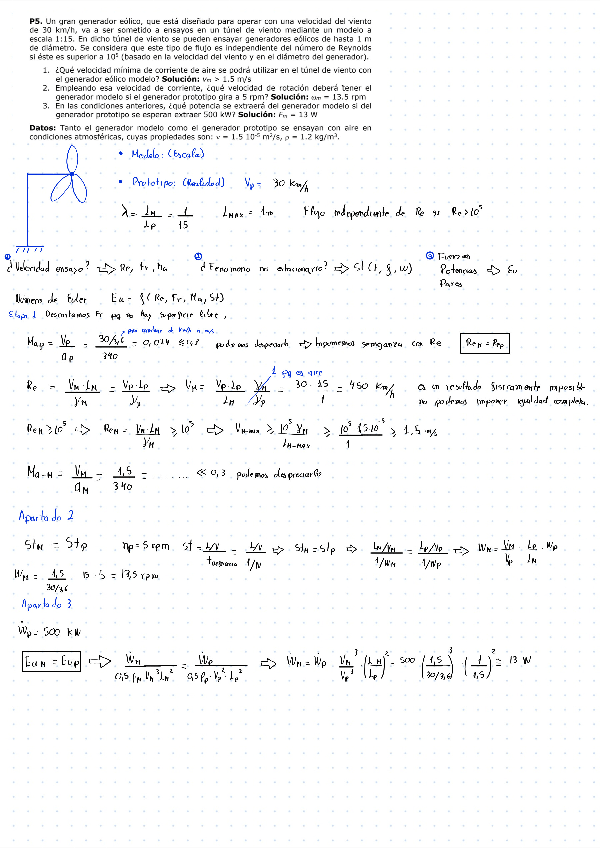 P5. Un gran generador eólico, que está diseñado para operar con una velocidad del viento
de 30 km/h, va a ser sometido a ensayos en un túnel de viento mediante un modelo a
escala 1:15. En dicho túnel de viento se pueden ensayar generadores eólicos de hasta 1 m
de diámetro. Se considera que este tipo de flujo es independiente del número de Reynolds
si éste es superior a 10⁵ (basado en la velocidad del viento y en el diámetro del generador).
1. ¿Qué velocidad mínima de corriente de aire se podrá utilizar en el túnel de viento con
el generador eólico modelo? Solución: vm > 1.5 m/s
2. Empleando esa velocidad de corriente, ¿qué velocidad de rotación deberá tener el
generador modelo si el generador prototipo gira a 5 rpm? Solución: ωm = 13.5 rpm
3. En las condiciones anteriores, ¿qué potencia se extraerá del generador modelo si del
generador prototipo se esperan extraer 500 kW? Solución: Ẇm = 13 W
Datos: Tanto el generador modelo como el generador prototipo se ensayan con aire en
condiciones atmosféricas, cuyas propiedades son: ν = 1.5 10⁻⁵ m²/s, ρ = 1.2 kg/m³.
• Modelo: (Escala)
• Prototipo: (Realidad) Vp = 30 km/h
λ = LM/Lp = 1/15 LMAX = 1m Flujo independiente de Re si Re > 10⁵
① ¿Velocidad ensayo? ⇨ Re, Fr, Ma ② ¿Fenomeno no estacionario? ⇨ St (t, f, ω) ③ Fuerzas
Potencias ⇨ Eu
Pares
Número de Euler Eu = f (Re, Fr, Ma, St)
Etapa 1 Descartamos Fr pq no hay superficie libre,
para cambiar de km/h a m/s
Map = Vp/ap = 30/3,6 / 340 = 0,024 ≤ 0,3 podemos despreciarlo ⇨ Imponemos semejanza con Re ReM = Rep
1 pq es aire
Re = VM·LM/γM = Vp·Lp/γp ⇨ VM = Vp·Lp/LM γM/γp = 30·15/1 = 450 km/h es un resultado físicamente imposible
no podemos imponer igualdad completa.
ReM ≥ 10⁵ ⇨ ReM = VM·LM/γM ≥ 10⁵ ⇨ VM-min ≥ 10⁵ γM/LM-MAX ≥ 10⁵ 1,5·10⁻⁵/1 ≥ 1,5 m/s
Ma-M = VM/aM = 1,5/340 = .... << 0,3 podemos despreciarlo
Apartado 2
StM = Stp np = 5 rpm St = L/V / t = L/V / 1/N ⇨ StM = Stp ⇨ LM/VM / 1/WM = Lp/Vp / 1/Np ⇨ WM = VM/Vp · Lp/LM · Wp
WM = 1,5/30/3,6 15 · 5 = 13,5 rpm
Apartado 3
Ẇp = 500 kW
EuM = Eup ⇨ ẆM / 0,5 ρM·VM³LM² = Ẇp / 0,5 ρp·Vp³·Lp² ⇨ ẆM = Ẇp · VM³/Vp³ · (LM/Lp)² = 500 (1,5/30/3,6)³ · (1/1,5)² = 13 W